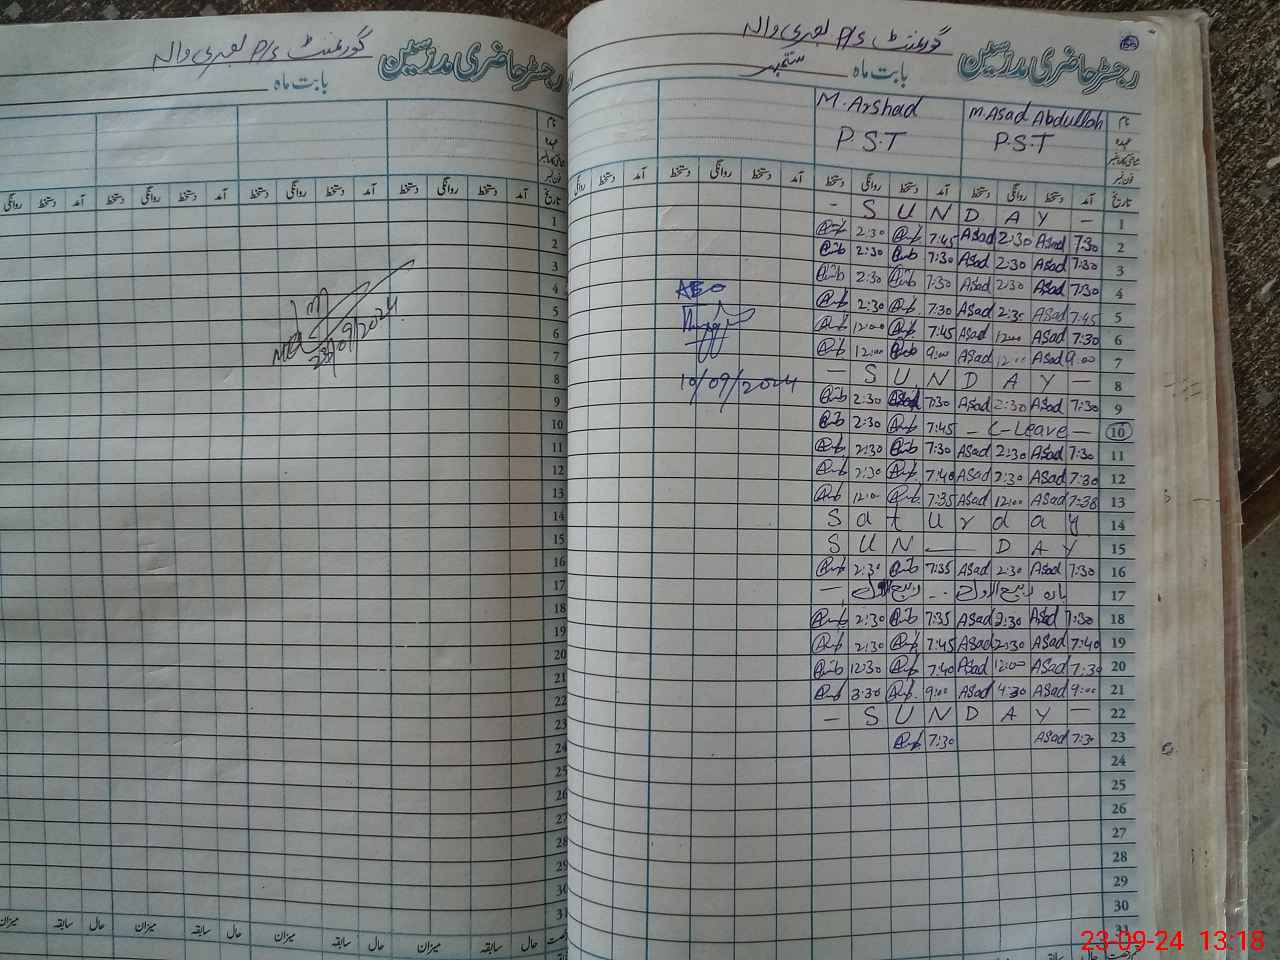 رجسٹر حاضری مدرسین گورنمنٹ P/S
بابت ماہ
آمد دستخط روانگی دستخط آمد دستخط روانگی دستخط آمد دستخط روانگی
1
2
3
4
5
6
7
8
9
10
11
12
13
14
15
16
17
18
19
20
21
22
23
24
25
26
27
28
29
30
31
23/09/2024
حال سابقہ میزان حال سابقہ میزان حال سابقہ میزان
رجسٹر حاضری مدرسین گورنمنٹ P/S
بابت ماہ ستمبر
نام M. Asad Abdullah M. Arshad
عہدہ P.S.T P.S.T
تاریخ آمد دستخط روانگی دستخط آمد دستخط روانگی دستخط آمد دستخط روانگی دستخط آمد دستخط روانگی
- S U N D A Y - 1
2:30 7:45 Asad 2:30 Asad 7:30 2
2:30 7:30 Asad 2:30 Asad 7:30 3
2:30 7:30 Asad 2:30 Asad 7:30 4
2:30 7:30 Asad 2:30 Asad 7:45 5
12:00 7:45 Asad 12:00 Asad 7:30 6
12:00 9:00 Asad 12:00 Asad 9:00 7
- S U N D A Y - 8
2:30 7:30 Asad 2:30 Asad 7:30 9
2:30 7:45 - C-Leave - 10
2:30 7:30 Asad 2:30 Asad 7:30 11
2:30 7:40 Asad 2:30 Asad 7:30 12
12:00 7:35 Asad 12:00 Asad 7:38 13
S a t u r d a y 14
S U N — D A Y 15
2:30 7:35 Asad 2:30 Asad 7:30 16
بارہ ربیع الاول - - ربیع الاول - 17
2:30 7:35 Asad 2:30 Asad 7:30 18
2:30 7:45 Asad 2:30 Asad 7:40 19
12:30 7:40 Asad 12:00 Asad 7:30 20
3:30 9:00 Asad 4:30 Asad 9:00 21
- S U N D A Y - 22
7:30 Asad 7:30 23
24
25
26
27
28
29
30
31
AEO
10/09/2024
23-09-24 13:18